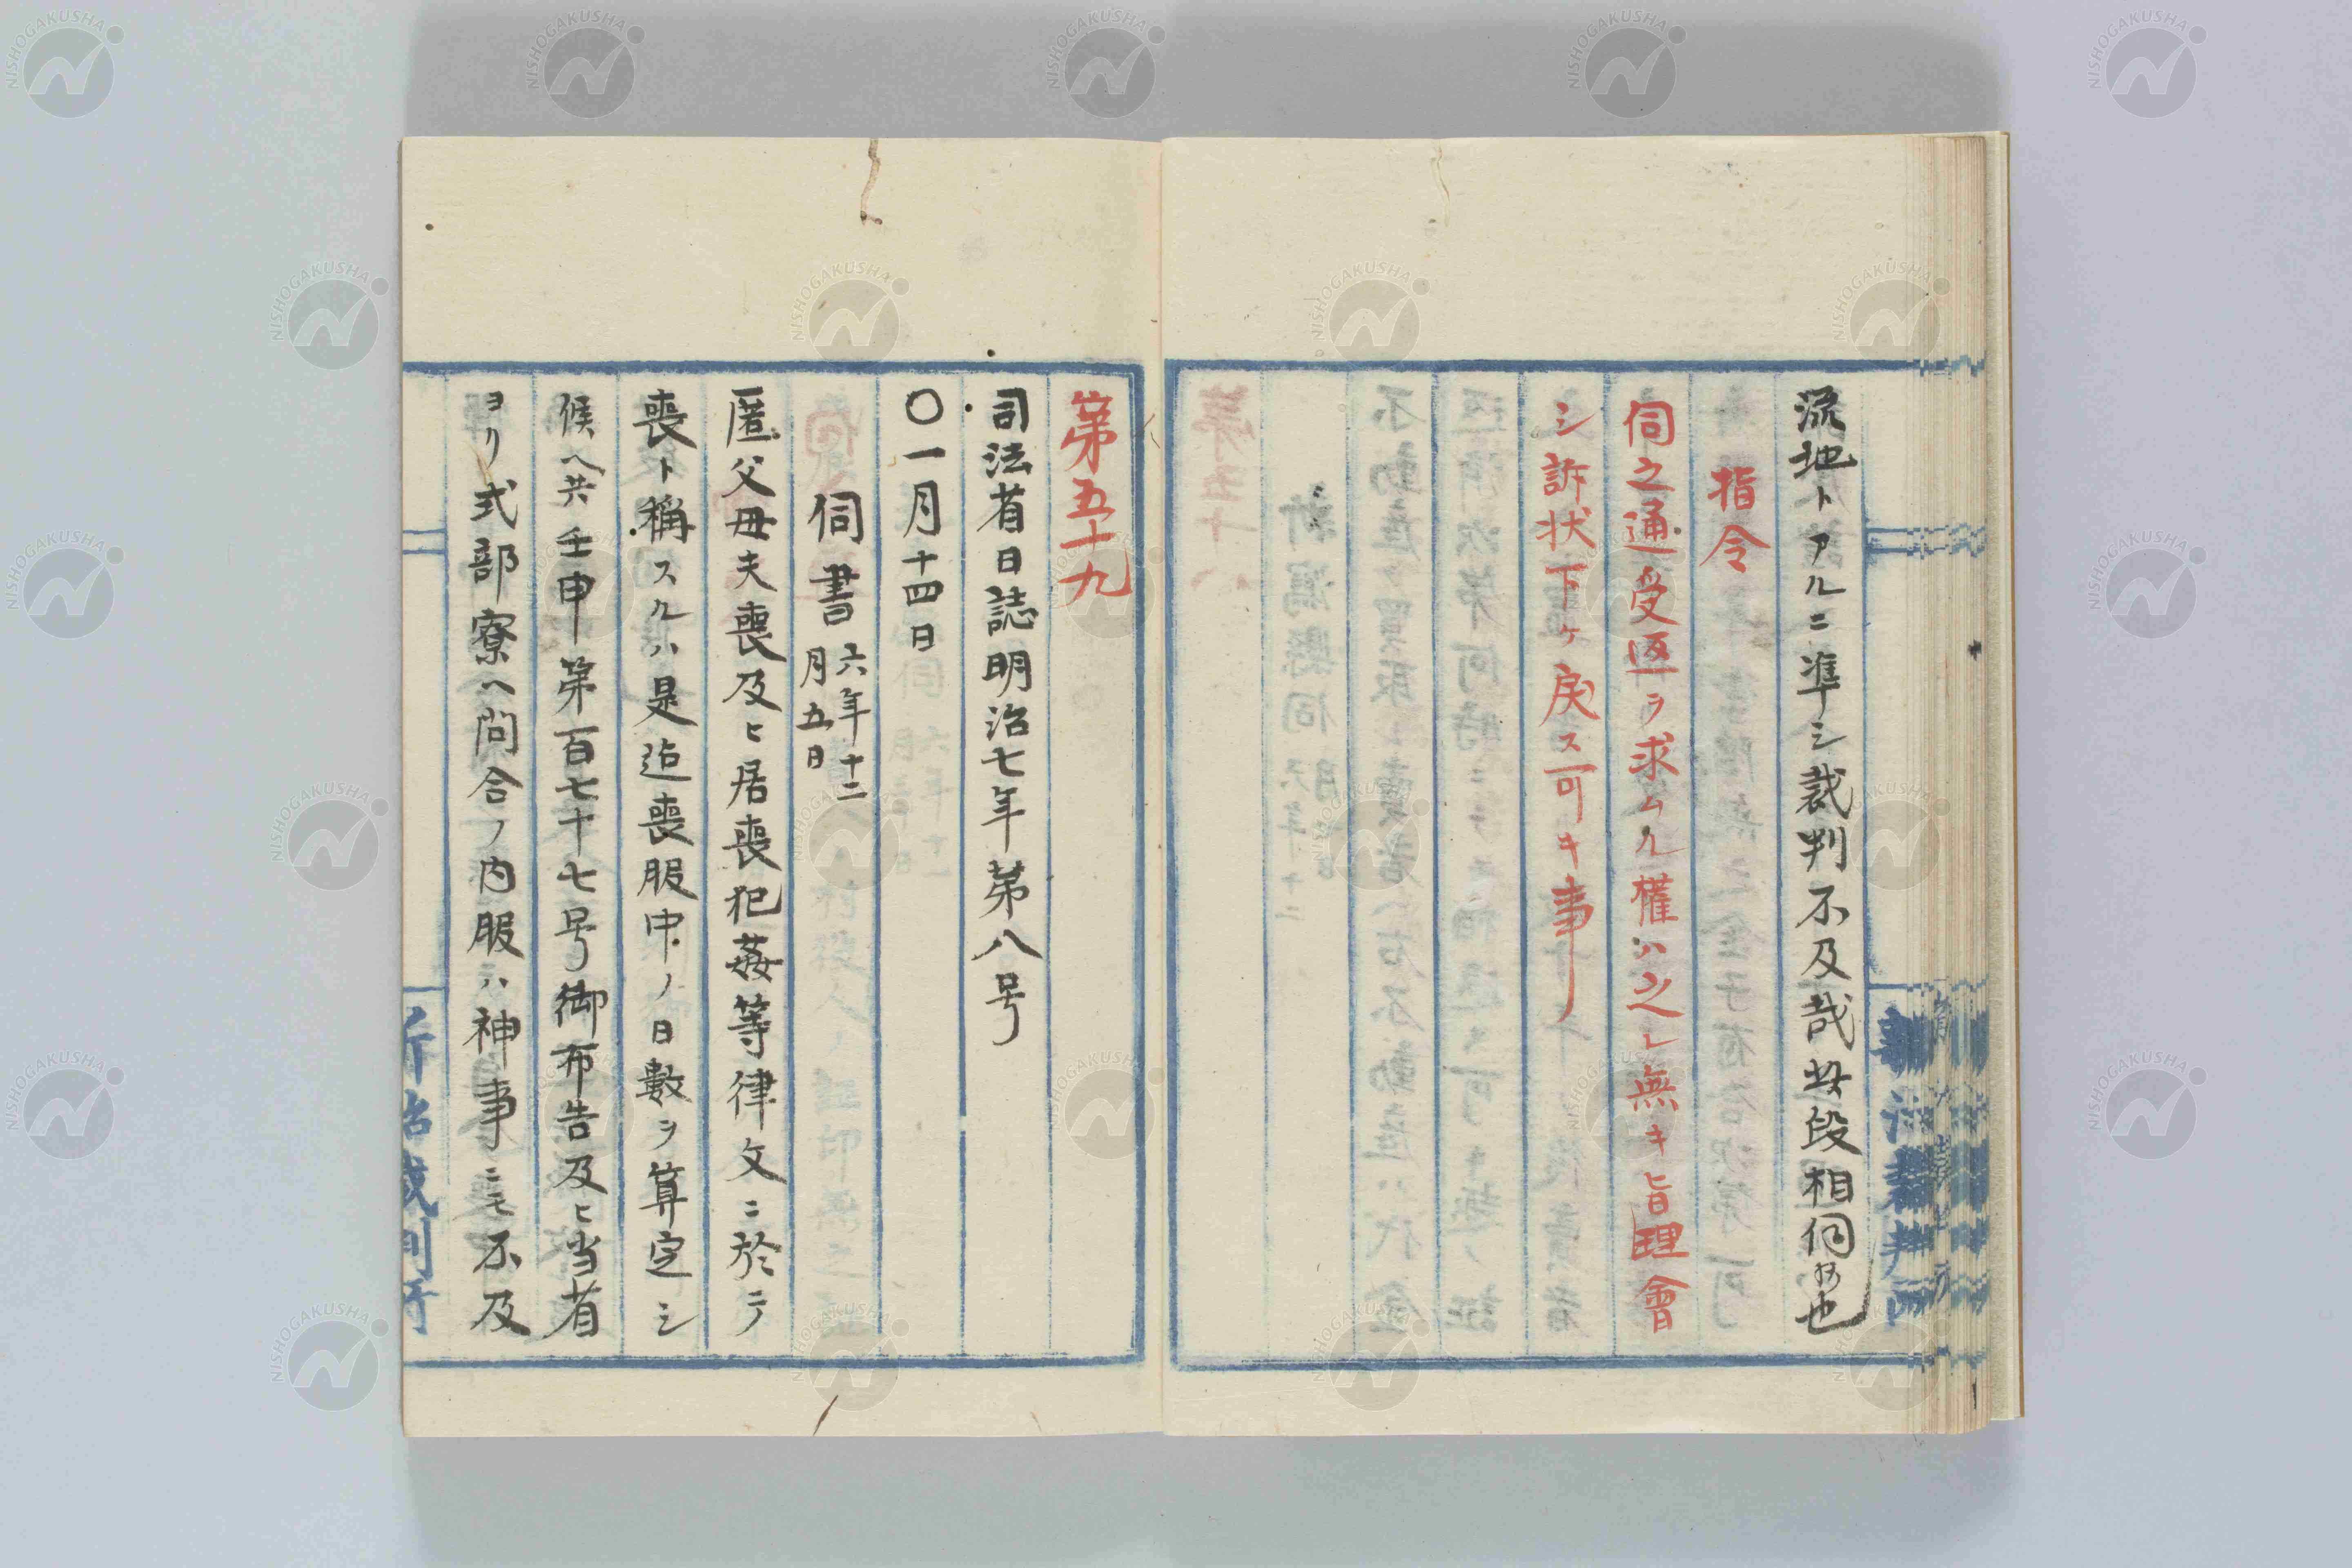 流地トアルニ準シ裁判不及哉此段相伺候也
指令
伺之通受返ヲ求ムル權ハ之レ無キ旨理會
シ訴状下ケ戻ス可キ事
第五十九
司法省日誌明治七年第八号
〇一月十四日
伺書 六年十二月五日
匿父母夫喪及ヒ居喪犯姦等律文ニ於テ
喪ト稱スルハ是迄喪服中ノ日數ヲ算定シ
候ヘ共壬申第百七十七号御布告及ヒ当省
ヨリ式部寮ヘ問合ノ内服ハ神事ニモ不及
NISHOGAKUSHA